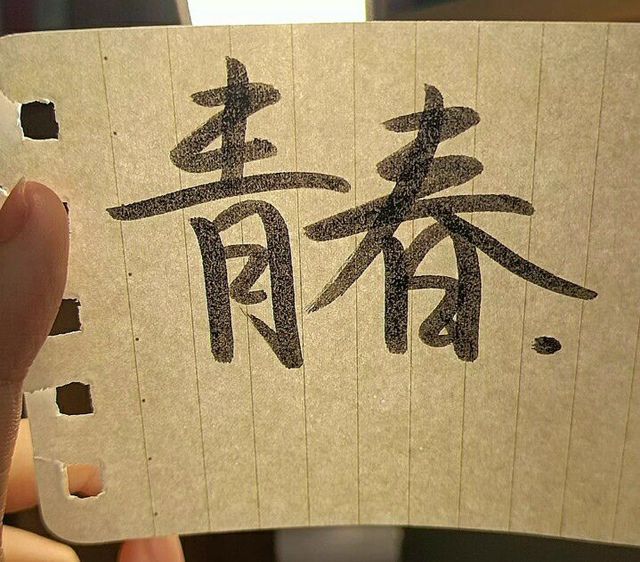 青春.